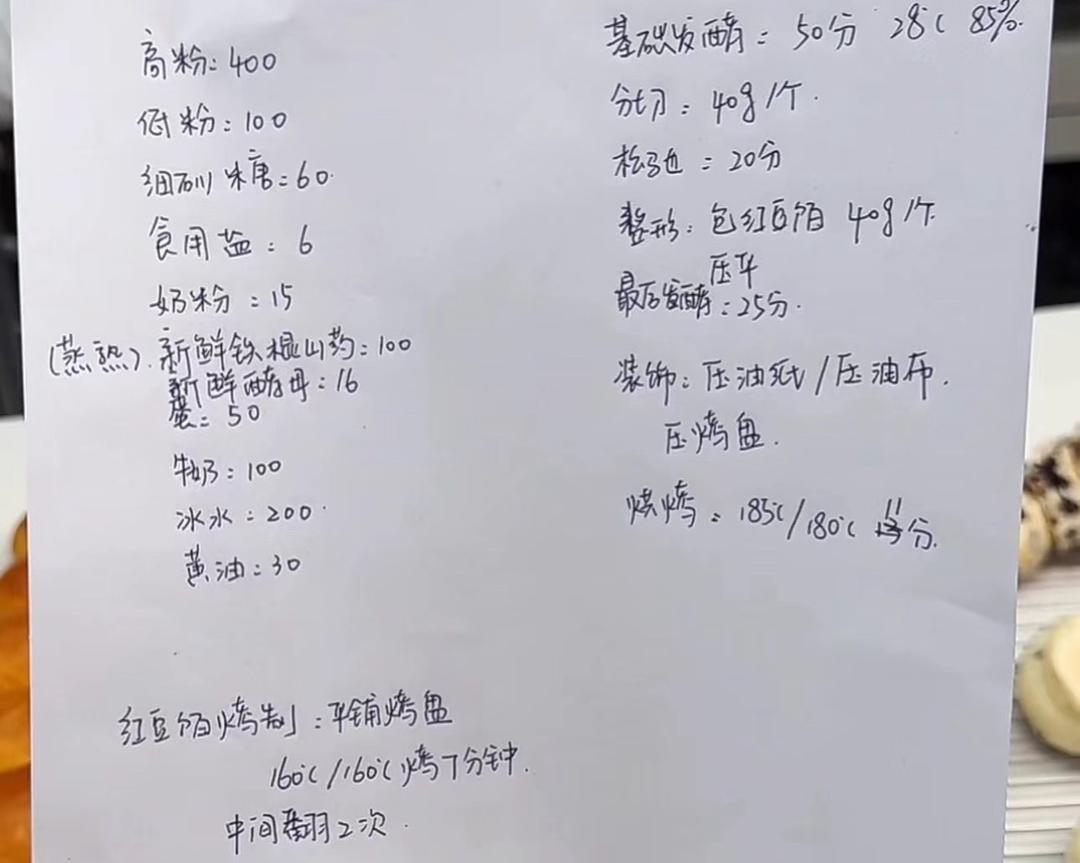 高粉：400
低粉：100
细砂糖：60
食用盐：6
奶粉：15
(蒸熟).新鲜铁棍山药：100
新鲜酵母：16
蛋：50
牛奶：100
冰水：200
黄油：30
红豆馅烤制：平铺烤盘
160℃/160℃烤7分钟.
中间翻2次.
基础发酵：50分 28℃ 85%.
分切：40g/个.
松弛：20分
整形：包红豆馅 40g/个
压平
最后发酵：25分.
装饰：压油纸/压油布.
压烤盘.
烘烤：185℃/180℃ 11分.